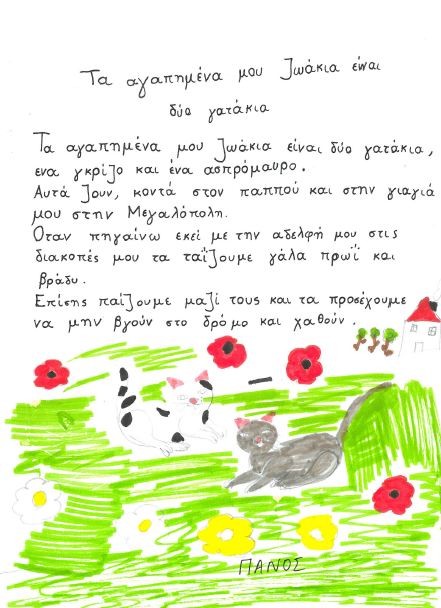 Τα αγαπημένα μου ζωάκια είναι
δύο γατάκια
Τα αγαπημένα μου ζωάκια είναι δύο γατάκια,
ενα γκρίζο και ένα ασπρόμαυρο.
Αυτά ζουν, κοντά στον παππού και στην γιαγιά
μου στην Μεγαλόπολη.
Οταν πηγαίνω εκεί με την αδελφή μου στις
διακοπές μου τα ταΐζουμε γάλα πρωΐ και
βράδυ.
Επίσης παίζουμε μαζί τους και τα προσέχουμε
να μην βγούν στο δρόμο και χαθούν.
ΠΑΝΟΣ